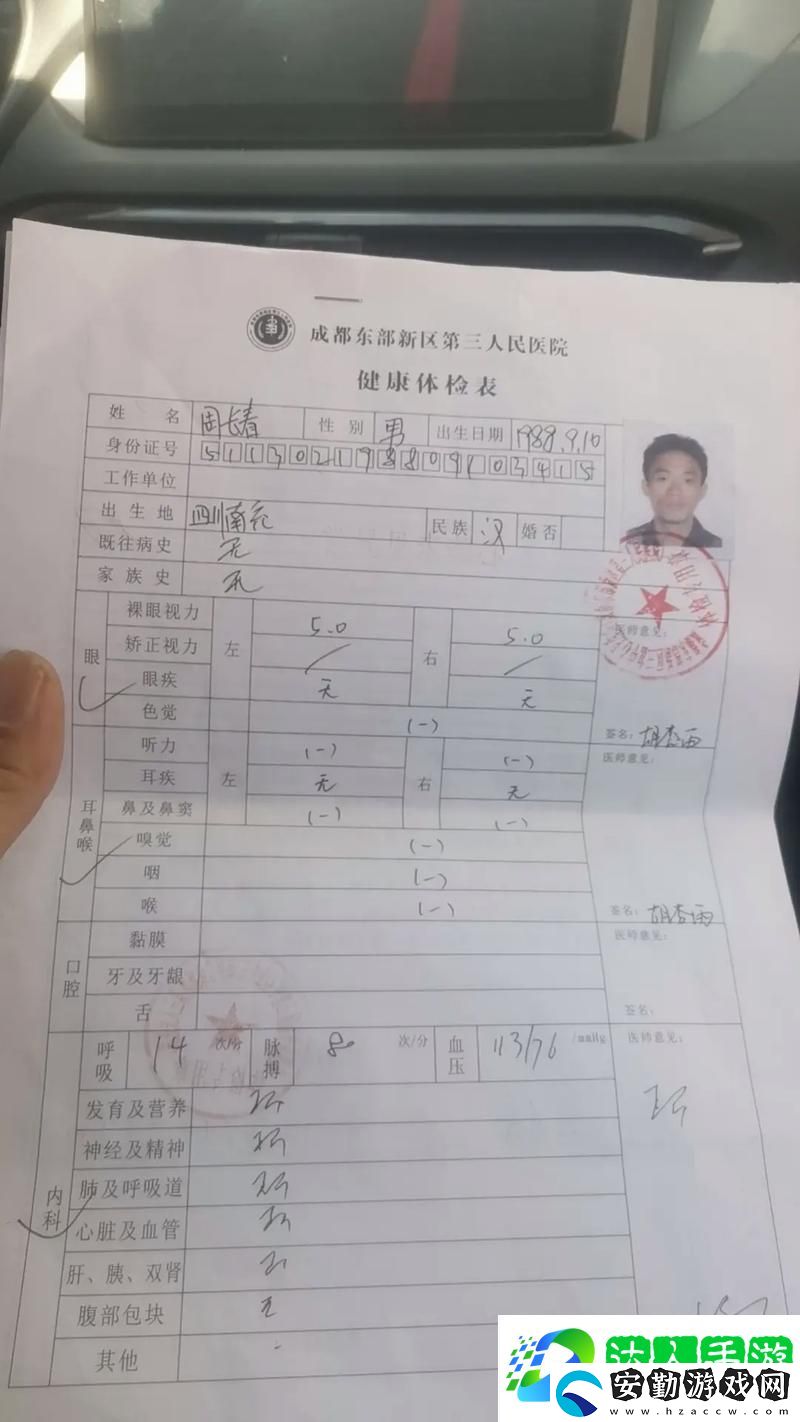 成都东部新区第三人民医院
健康体检表
姓名 周长春 性别 男 出生日期 1988.9.10
身份证号 511302198809103415
工作单位
出生地 四川南充 民族 汉 婚否
既往病史 无
家族史 无
眼 裸眼视力 左 5.0 右 5.0 医师意见:
矫正视力 / /
眼疾 无 无
色觉 (-) 签名:
耳鼻喉 听力 左 (-) 右 (-) 医师意见:
耳疾 无 无
鼻及鼻窦 (-) (-)
嗅觉 (-)
咽 (-)
喉 (-) 签名:
口腔 黏膜 医师意见:
牙及牙龈
舌 签名:
内科 呼吸 14 次/分 脉搏 80 次/分 血压 113/76 /mmHg 医师意见:
发育及营养
神经及精神
肺及呼吸道
心脏及血管
肝、胰、双肾
腹部包块 无
其他 -
达人手游
安勤游戏网
www.hzaccw.com